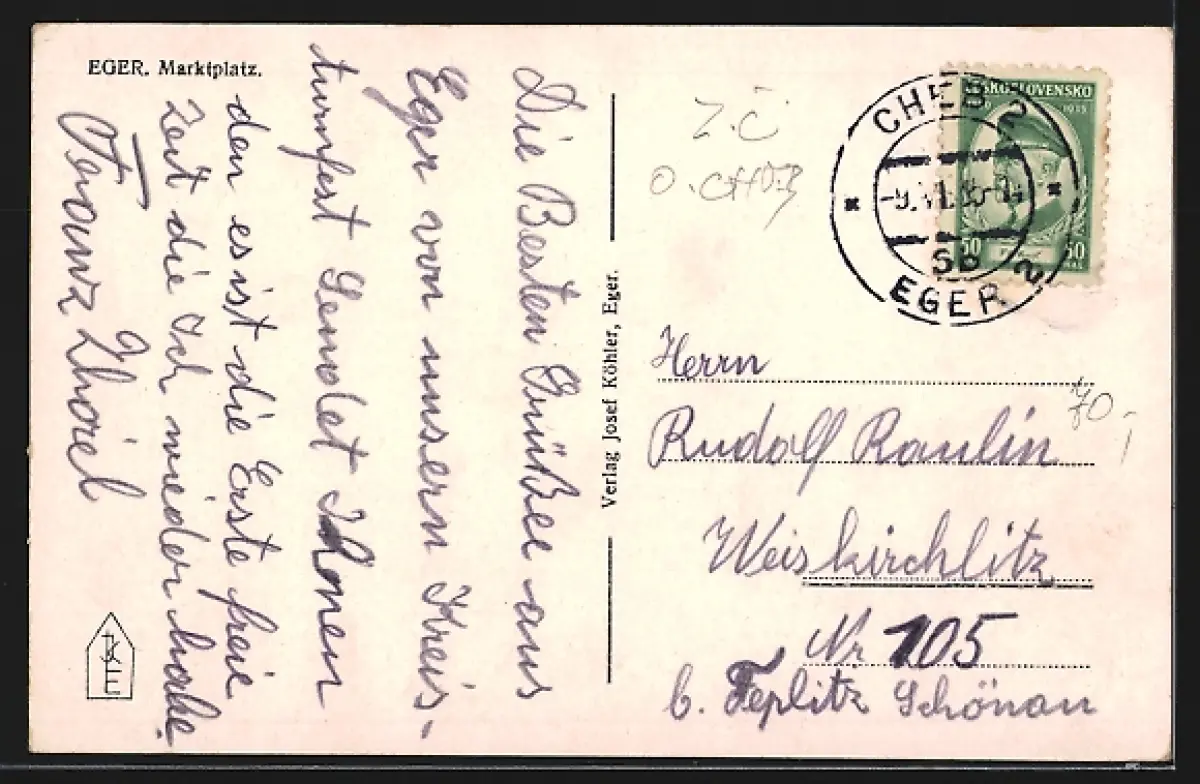 EGER. Marktplatz.
Die Besten Grüße aus
Eger von unsern Kreis-
turnfest Sendet Ihnen
den es ist die Erste freie
Zeit die Ich wieder habe.
Franz
Verlag Josef Köhler, Eger.
JK
E
Z.Č
O.CHEB
ČESKOSLOVENSKO
1935
50
50
CHEB 2
-9.VI.35-
5b
EGER 2
Herrn
70,-
Rudolf Raulin
Weiskirchlitz
Nr 105
b. Teplitz Schönau